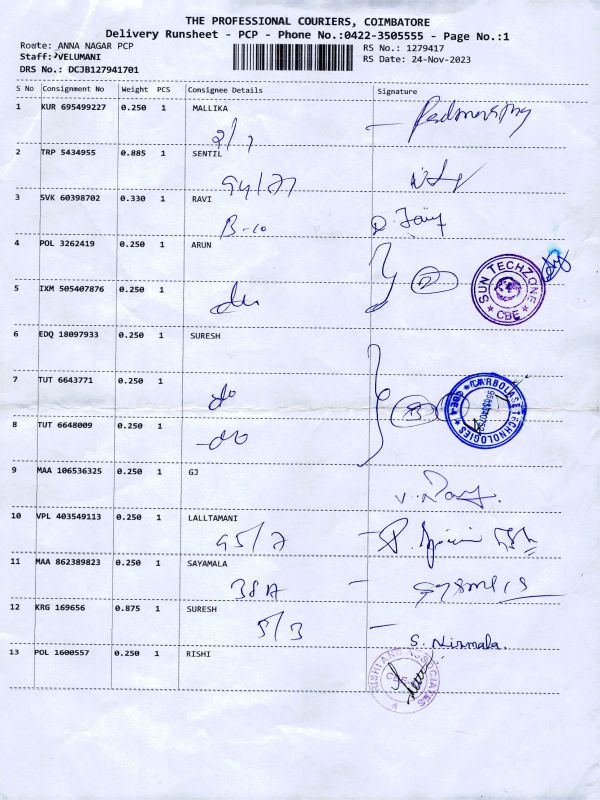 THE PROFESSIONAL COURIERS, COIMBATORE
Delivery Runsheet - PCP - Phone No.:0422-3505555 - Page No.:1
Route: ANNA NAGAR PCP RS No.: 1279417
Staff: VELUMANI RS Date: 24-Nov-2023
DRS No.: DCJB127941701
S No Consignment No Weight PCS Consignee Details Signature
1 KUR 695499227 0.250 1 MALLIKA
2/7
2 TRP 5434955 0.885 1 SENTIL
94/77
3 SVK 60398702 0.330 1 RAVI
B-10
4 POL 3262419 0.250 1 ARUN
SUN TECHZONE
CBE
5 IXM 505407876 0.250 1
do
6 EDQ 18097933 0.250 1 SURESH
7 TUT 6643771 0.250 1
do
CARBOLASE TECHNOLOGIES
8 TUT 6648009 0.250 1
do
9 MAA 106536325 0.250 1 GJ
10 VPL 403549113 0.250 1 LALLTAMANI
95/7
11 MAA 862389823 0.250 1 SAYAMALA
38A
12 KRG 169656 0.875 1 SURESH
5/3
S. Nirmala.
13 POL 1600557 0.250 1 RISHI
RISHI AND ASSOCIATES